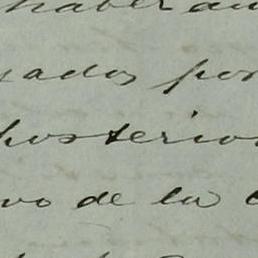 haber au
sados por
posterior
vo de la C